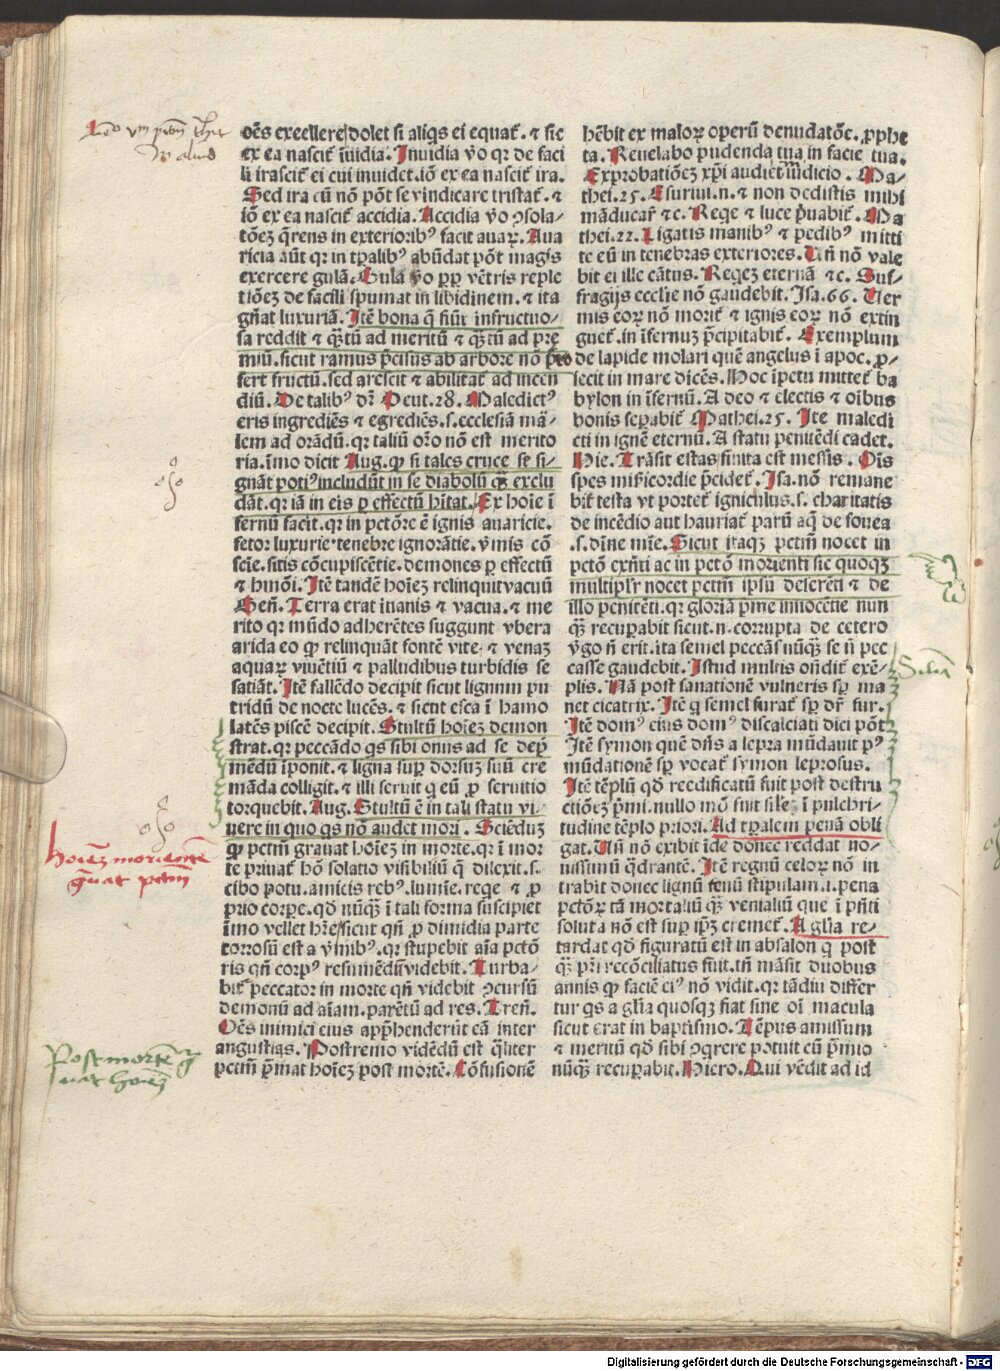 oēs excellere dolet si aliqs ei equat̄. ⁊ sic
ex ea nascit̄ īuidia. Inuidia v̄o qꝛ de faci
li irascit̄ ei cui inuidet. iō ex ea nascit̄ ira.
Sed ira cū nō pōt se vindicare tristat̄. ⁊
iō ex ea nascit̄ accidia. Accidia v̄o ꝯsola/
tōeꝫ q̄rens in exteriorib⁹ facit auaꝝ. Aua
ricia aūt qꝛ in tꝑalib⁹ abūdat pōt magis
exercere gulā. Gula v̄o ꝓp̄ vētris reple
tiōeꝫ de facili spumat in libidinem. ⁊ ita
gn̄at luxuriā. Itē bona q̄ fiūt infructuo/
sa reddit ⁊ qꝫ̄tū ad meritū ⁊ qꝫ̄tū ad pre
miū. sicut ramus p̄cisus ab arbore nō
fert fructū. sed arescit ⁊ abilitat̄ ad incen
diū. De talib⁹ dꝛ̄ Deut. 28. Maledict⁹
eris ingrediēs ⁊ egrediēs. s. ecclesiā mā/
lem ad orādū. qꝛ taliū or̄o nō est merito
ria. īmo dicit Aug. ꝙ si tales cruce se si/
gnāt poti⁹ includūt in se diabolū qꝫ̄ exclu
dāt. qꝛ iā in eis ꝑ effectū hītat. Ex hoīe ī
fernū facit. qꝛ in pctōre ē ignis auaricie.
fetor luxurie. tenebre ignorātie. v̄mis cō
scīe. sitis cōcupiscētie. demones ꝑ effectū
⁊ hmōi. Itē tandē hoīeꝫ relinquit vacuū
Gen̄. Terra erat inanis ⁊ vacua. ⁊ me
rito qꝛ mūdo adherētes suggunt vbera
arida eo ꝙ relinquāt fontē vite. ⁊ venaꝫ
aquaꝝ viuētiū ⁊ palludibus turbidis se
satiāt. Itē fallēdo decipit sicut lignum pu
tridū de nocte lucēs. ⁊ sicut esca ī hamo
latēs piscē decipit. Stultū hoīeꝫ demon
strat. qꝛ peccādo qs sibi onus ad se dep̄
mēdū īponit. ⁊ ligna suꝑ dorsuꝫ suū cre
māda colligit. ⁊ illi seruit q̄ eū ꝓ seruitio
torquebit. Aug. Stultū ē in tali statu vi/
uere in quo qs nō audet mori. Sciēduꝫ
ꝙ pctm̄ grauat hoīeꝫ in morte. qꝛ ī mor
te priuat̄ hō solatio visibiliū q̄ dilexit. s.
cibo potu. amicis reb⁹. lumīe. rege ⁊ ꝓ
prio corꝑe. qd̄ nūqꝫ̄ ī tali forma suscipiet
īmo vellet hr̄e sicut qn̄ ꝓ dimidia parte
corrosū est a v̄mib⁹. qꝛ stupebit aīa pctō
ris qn̄ corp⁹ resumēdū videbit. Turba/
bit̄ peccator in morte qn̄ videbit ꝯcursū
demonū ad aīam. parētū ad res. Tren̄.
Oēs inimici eius app̄henderūt eā inter
angustias. Postremo vidēdū est qͣliter
pctm̄ p̄mat hoīeꝫ post mortē. Cōfusionē
hēbit ex maloꝝ operū denudatōe. ꝓphe
ta. Reuelabo pudenda tua in facie tua.
Exprobatiōeꝫ xp̄i audiet in iudicio. Ma/
thei. 25. Esuriui. n. ⁊ non dedistis mihi
māducar̄ ⁊c. Rege ⁊ luce p̄uabit̄. Ma
thei. 22. Ligatis manib⁹ ⁊ pedib⁹ mitti
te eū in tenebras exteriores. Un̄ nō vale
bit ei ille cātus. Regeꝫ eternā ⁊c. Suf/
fragijs ecclīe nō gaudebit. Isa. 66. Uer
mis eoꝝ nō morit̄ ⁊ ignis eoꝝ nō extin
guet̄. in īfernuꝫ p̄cipitabit̄. Exemplum
de lapide molari quē angelus ī apoc. ꝓ/
iecit in mare dicēs. Hoc īpetu mittet̄ ba
bylon in īfernū. A deo ⁊ electis ⁊ oībus
bonis seꝑabit̄ Mathei. 25. Ite maledi
cti in ignē eternū. A statu penitēdi cadet.
Hie. Trāsit estas finita est messis. Oīs
spes mīsericordie p̄cidet̄. Isa. nō remane
bit testa vt portet̄ igniculus. s. charitatis
de incēdio aut hauriat̄ parū aq̄ de fouea
.s. dīne mīe. Sicut itaqꝫ pctm̄ nocet in
pctō exn̄ti ac in pctō morienti sic quoqꝫ
multiplr̄ nocet pctm̄ ipsū deserēti ⁊ de
illo penitēti. qꝛ gloriā pme innocētie nun
qꝫ̄ recuꝑabit sicut. n. corrupta de cetero
v̄go n̄ erit. ita semel peccās nūqꝫ̄ se n̄ pec
casse gaudebit. Istud multis oн̄dit̄ exē/
plis. Nā post sanationē vulneris sꝑ ma
net cicatrix. Itē q̄ semel furat̄ sꝑ dꝛ̄ fur.
Itē dom⁹ eius dom⁹ discalciati dici pōt
Itē symon quē dn̄s a lepra mūdauit p⁹
mūdationē sꝑ vocat̄ symon leprosus.
Itē tēplū qd̄ reedificatū fuit post destru
ctiōeꝫ p̄mi. nullo mō fuit sile ī pulchri/
tudine tēplo priori. Ad tꝑalem penā obli
gat. Un̄ nō exibit īde donec reddat no/
uissimū q̄drantē. Itē regnū celoꝝ nō in
trabit donec lignū fenū stipulam. i. pena
pctōꝝ tā mortaliū qꝫ̄ venialiū que ī pn̄ti
soluta nō est suꝑ ipꝫ cremet̄. A gl̄ia re/
tardat qd̄ figuratū est in absalon q̄ post
qꝫ̄ pr̄i recōciliatus fuit. tn̄ māsit duobus
annis ꝙ faciē ei⁹ nō vidit. qꝛ tādiu differ
tur qs a gl̄ia quousqꝫ fiat sine oī macula
sicut erat in baptismo. Tēpus amissum
⁊ meritū qd̄ sibi ꝯgrere potuit cū p̄mio
nūqꝫ̄ recuꝑabit. Hiero. Qui vēdit ad id
hoīeꝫ morientē
g̃uat pctm̄
Post mortē g̃
uat hoīeꝫ
Digitalisierung gefördert durch die Deutsche Forschungsgemeinschaft - DFG